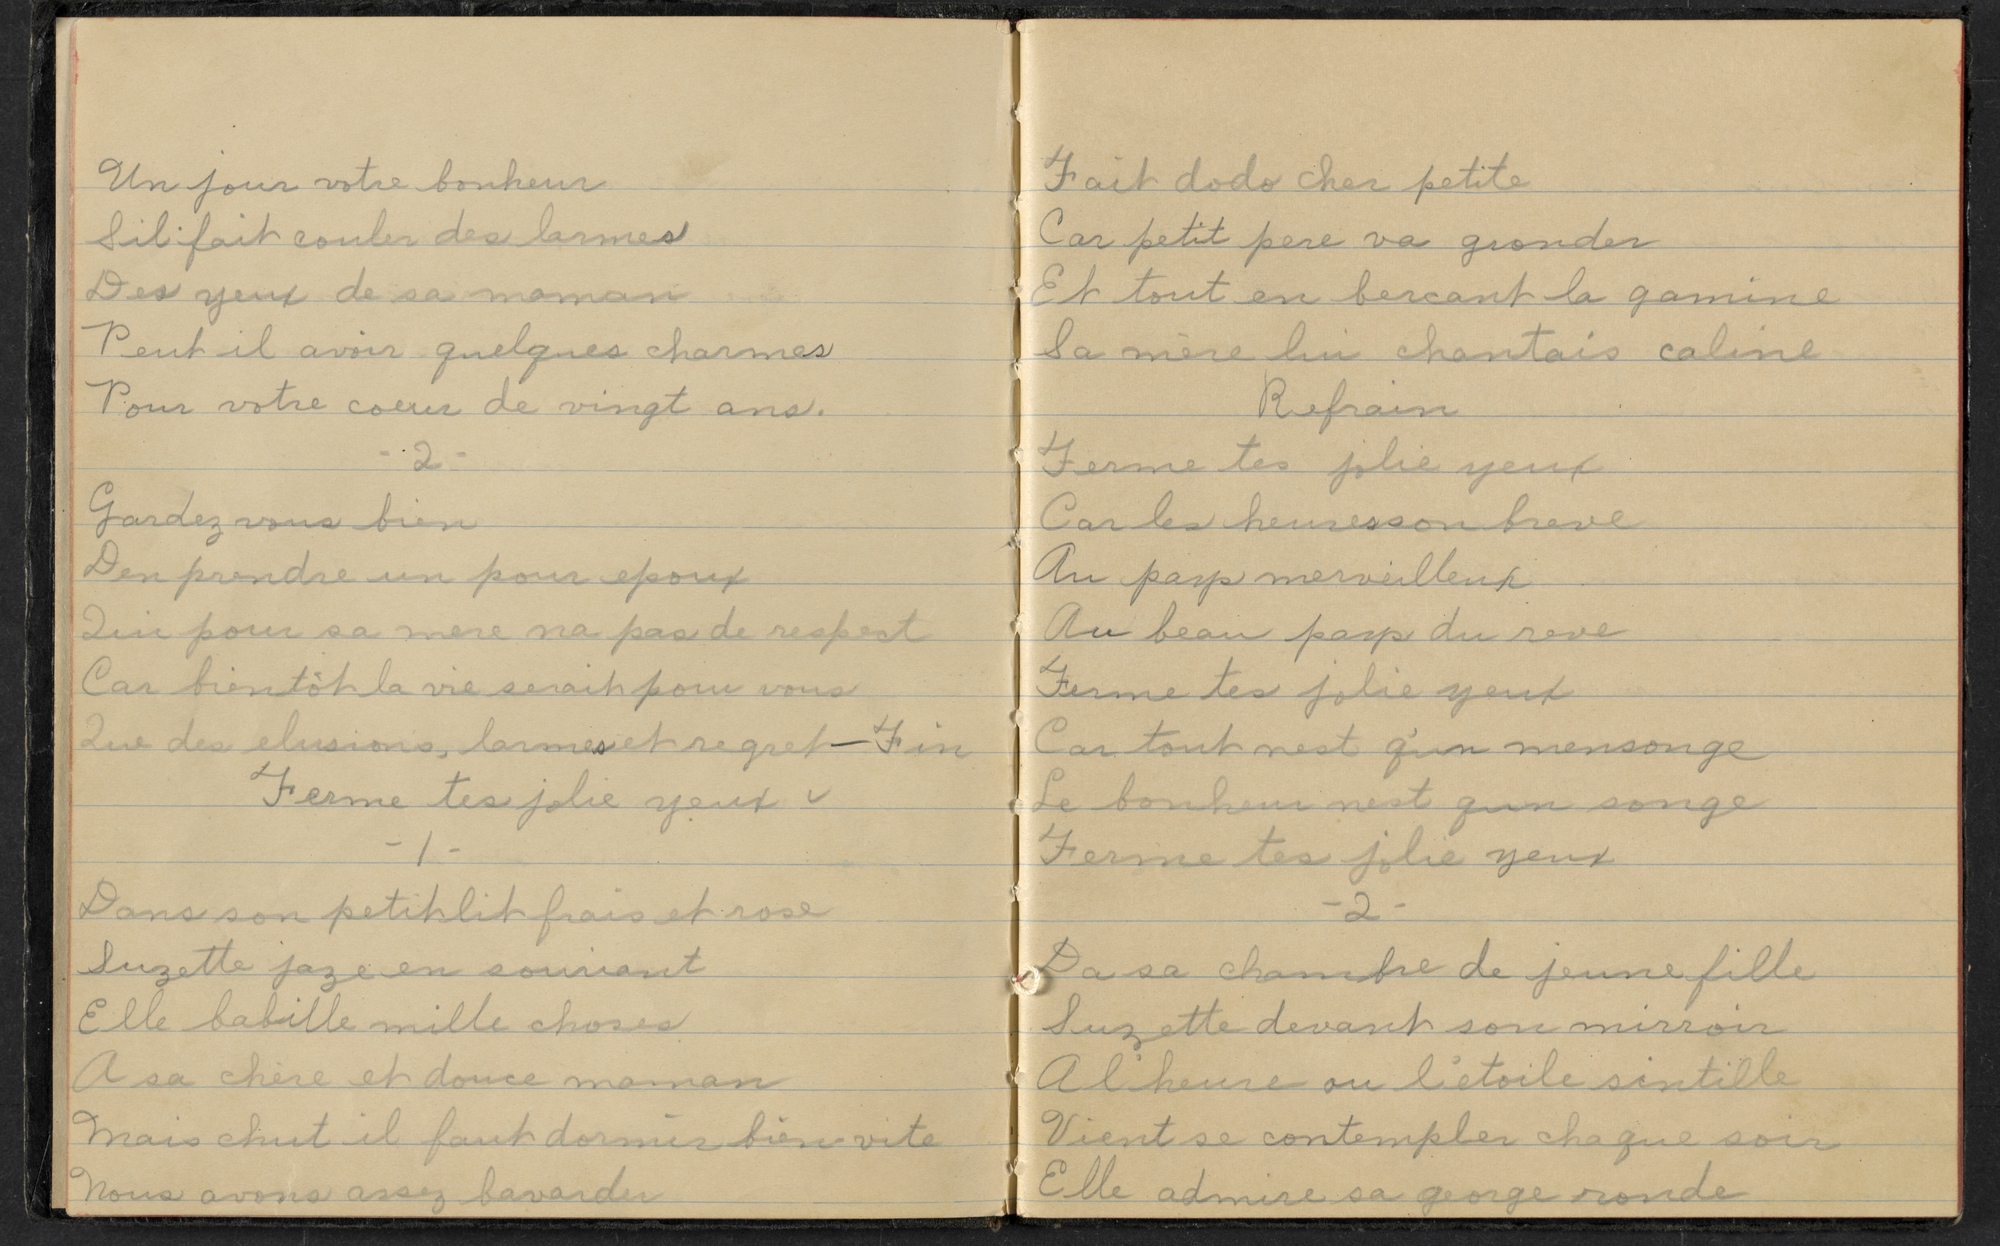 Un jour votre bonheur
Sil fait couler des larmes
Des yeux de sa maman
Peut il avoir quelques charmes
Pour votre coeur de vingt ans.
- 2 -
Gardez vous bien
Den prendre un pour epoux
Qui pour sa mere na pas de respect
Car bientôt la vie serait pour vous
Que des elusions, larmes et regret – Fin
Ferme tes jolie yeux ✓
- 1 -
Dans son petit lit frais et rose
Suzette jaze en souriant
Elle babille mille choses
A sa chère et douce maman
Mais chut il faut dormir bien vite
Nous avons assez bavarder
Fait dodo cher petite
Car petit pere va gronder
Et tout en bercant la gamine
Sa mère lui chantais caline
Refrain
Ferme tes jolie yeux
Car les heures son breve
Au pays merveilleux
Au beau pays du reve
Ferme tes jolie yeux
Car tout nest q'un mensonge
Le bonheur nest qun songe
Ferme tes jolie yeux
- 2 -
Da sa chambre de jeune fille
Suzette devant son mirroir
A l'heure ou l'etoile sintille
Vient se contempler chaque soir
Elle admire sa george ronde